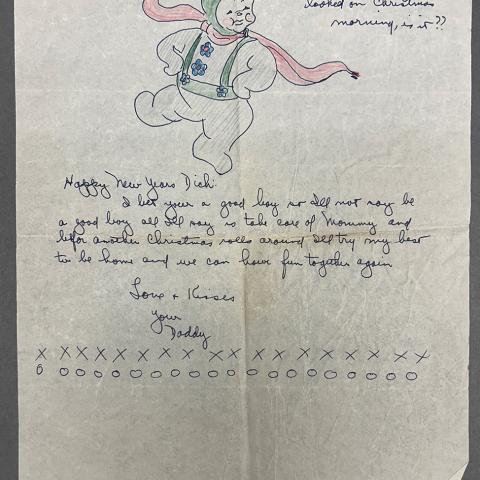 looked on Christmas
morning, is it??
Happy New Years Dick.
I bet your a good boy so Ill not say be
a good boy all Ill say is take care of Mommy and
befor another Christmas rolls around Ill try my best
to be home and we can have fun together again
Love + Kisses
Your
Daddy
X X X X X X X X X X X X X X X X X X X
O O O O O O O O O O O O O O O O O O O